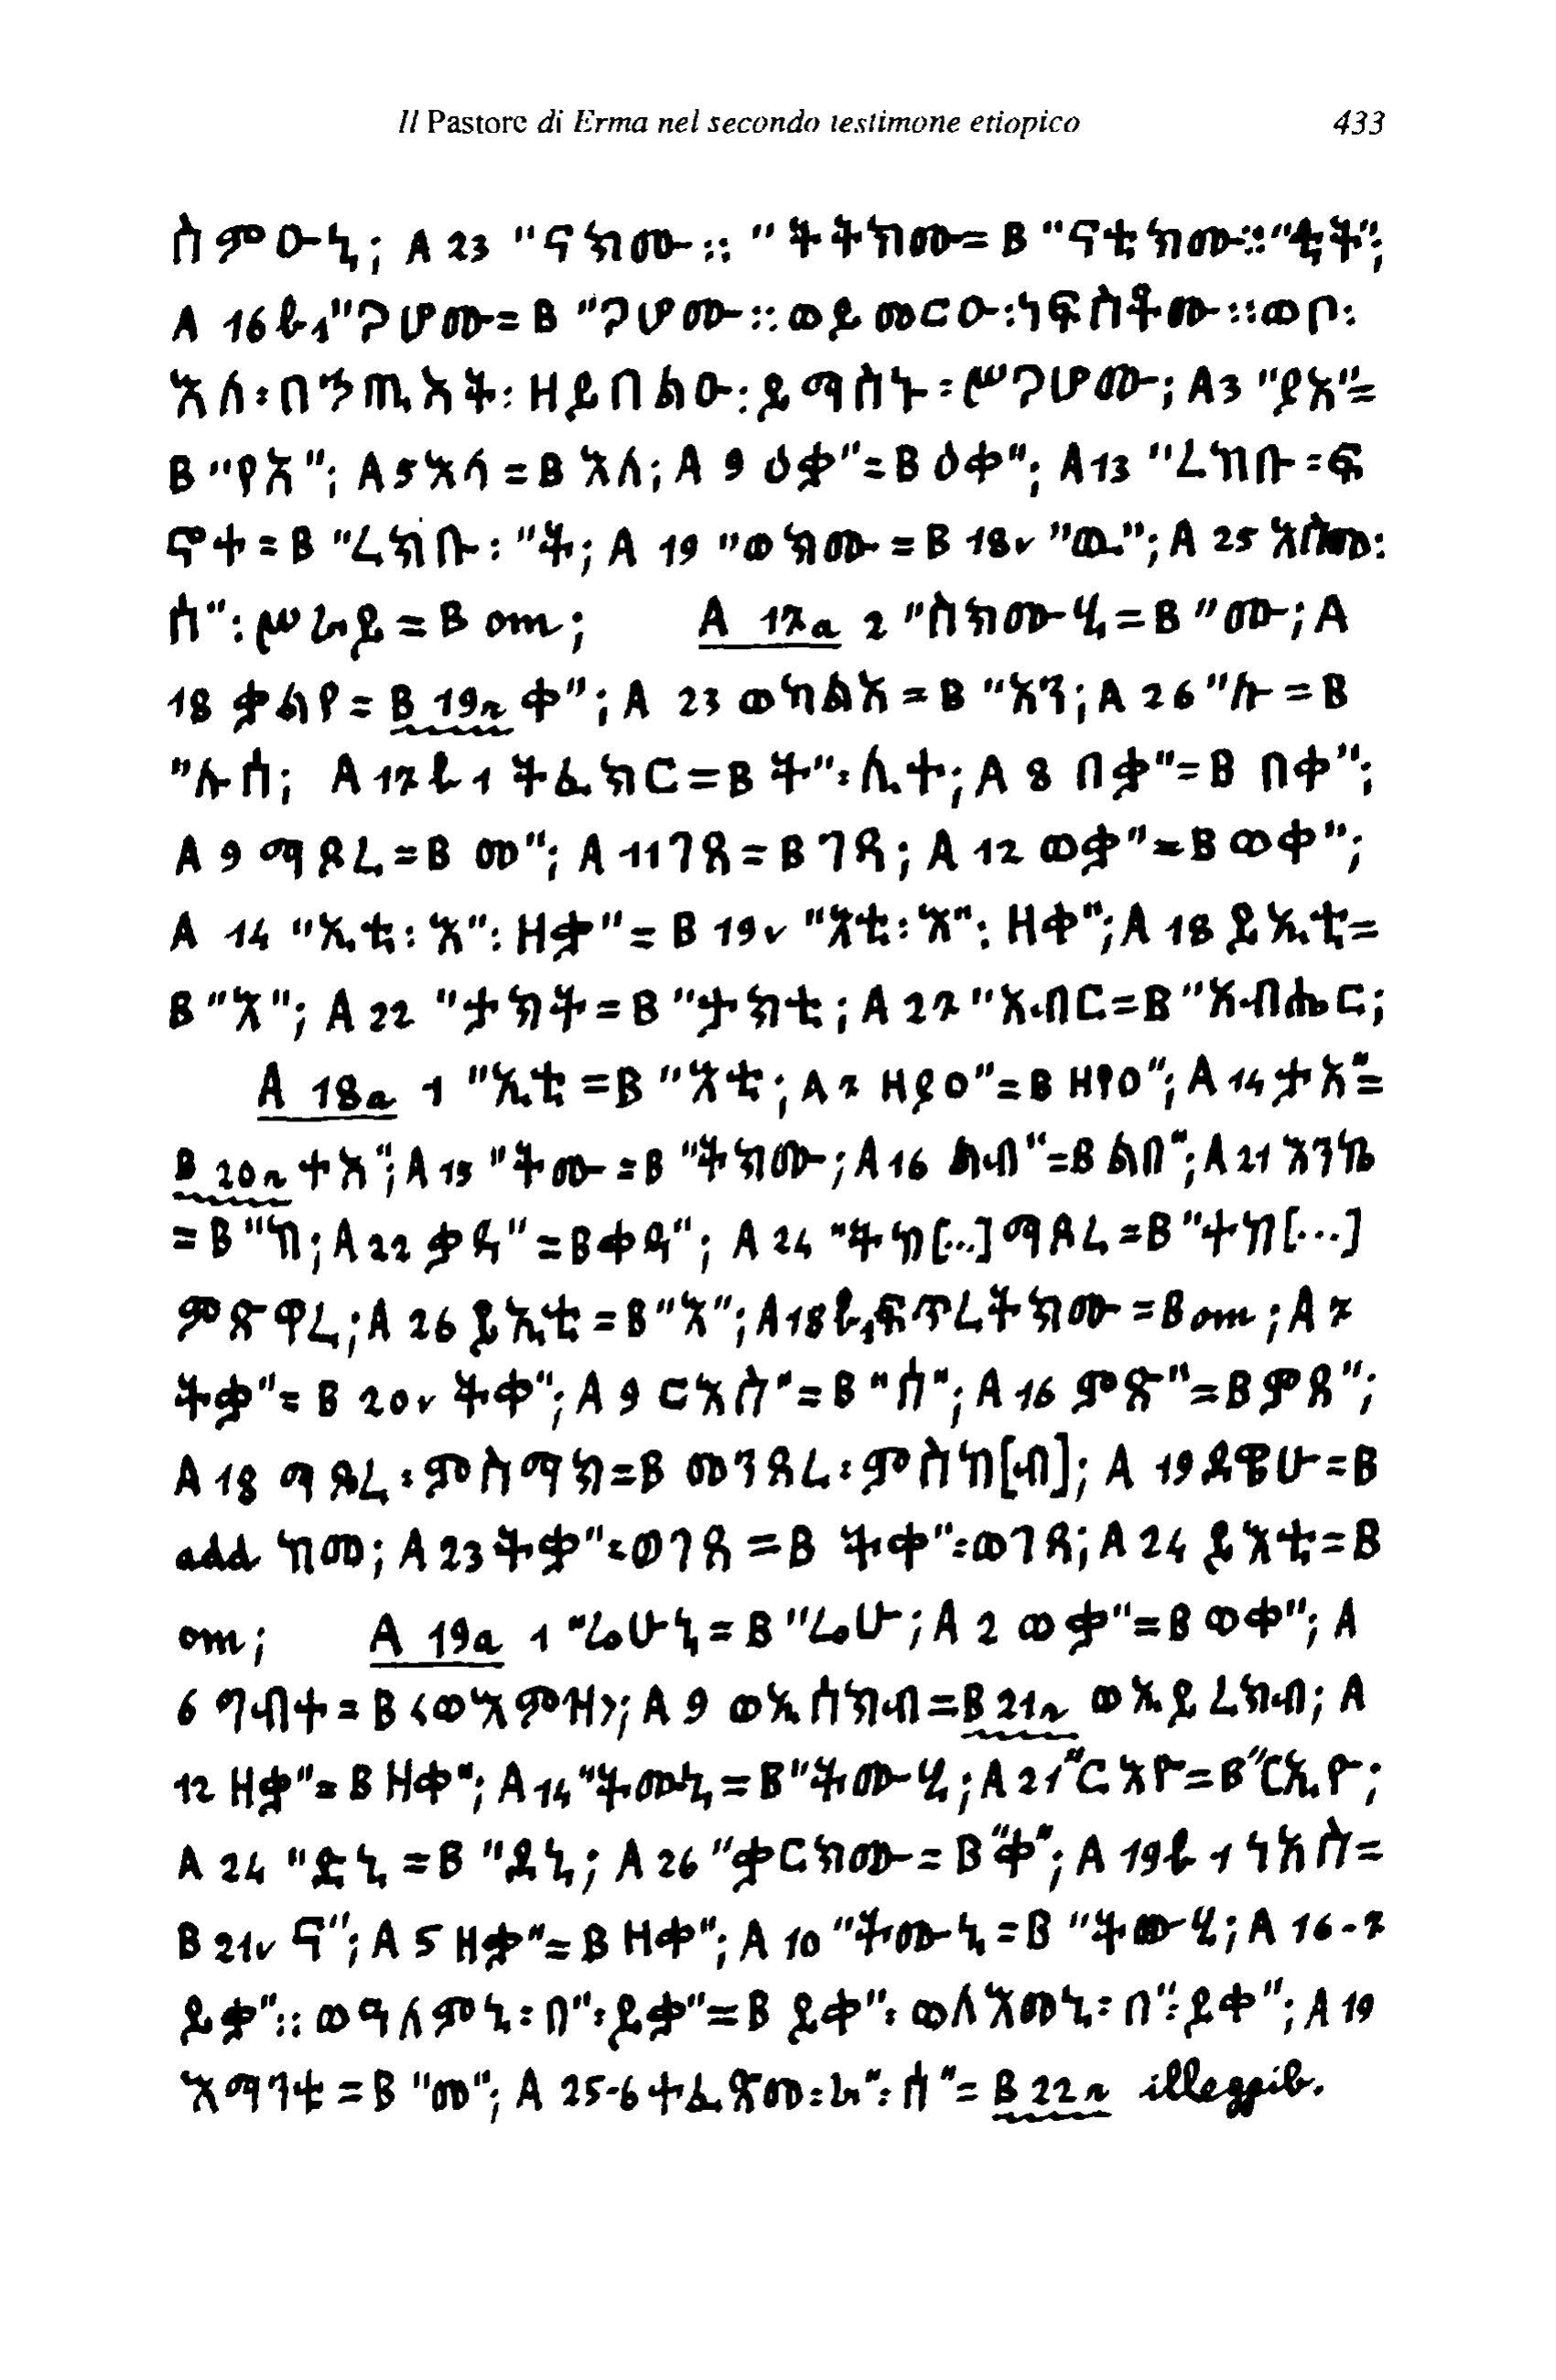 Il Pastore di Erma nel secondo testimone etiopico 433
ስምዑኒ; A 23 "ናክሙ።"ትትክሙ= B "ናቲክሙ።"ቲት";
A 16b1"ጋሆሙ= B "ጋሆሙ።ወይመርዑ:ነፍስቶሙ።ወቦ:
እለ:በኀጢአት:ዘይበልዑ:ይማስኑ:ሥጋሆሙ; A3 "ያአ"=
B "የአ"; A5 እሳ = B እለ; A 9 ዕቃ"=B ዕቀ"; A13 "ረከቡ =ፍ
ኖተ = B "ረክቡ:"ት; A 19 "ወክሙ = B 18v "ዉ"; A 25 እስመ:
ሰ":ሥራይ = B om; A 17a 2 "ስክሙሂ = B "ሙ; A
18 ቃልየ = B 19r ቀ"; A 23 ወከልአ = B "እን; A 26 "ሉ = B
"ሉሰ; A 17b 1 ትፌክር = B ት":ሊተ; A 8 በቃ"= B በቀ";
A 9 ማዕደረ = B መ"; A 11 ገጸ = B ገጻ; A 12 ወቃ"= B ወቀ";
A 14 "ኢቲ:እ":ዘቃ"= B 19v "እቲ:እ":ዘቀ"; A 18 ይኢቲ=
B "እ"; A 22 "ታክት = B "ታክቲ; A 27 "አብር= B "አብሔር;
A 18a 1 "ኢቲ = B "እቲ; A 7 ዘያዐ"= B ዘየዐ"; A 14 ታአ"=
B 20r ተአ"; A 15 "ትሙ = B "ትክሙ; A 16 ልብ"=B ልበ"; A 21 እንከ
= B "ከ; A 22 ቃዳ"=B ቀዳ"; A 24 "ትከ[...] ማጸረ = B "ተከ[...]
ምጽዋረ; A 26 ይኢቲ = B "እ"; A 18b, ፍጥረትክሙ = B om; A 7
ትቃ"= B 20v ትቀ"; A 9 ርእስ"= B "ሰ"; A 16 ምጽ"=B ምጸ";
A 18 ማጸረ:ምስማክ=B መንጸረ:ምስከ[ብ]; A 19 ደቂሁ = B
add ከመ; A 23 ትቃ":ወገጸ = B ትቀ":ወገጻ; A 24 ይእቲ= B
om; A 19a 1 "ሬሁኒ = B "ሬሁ; A 2 ወቃ"= B ወቀ"; A
6 ግብተ = B <ወእምዝ>; A 9 ወኢሰክብ = B 21r ወኢይረክብ; A
12 ዘቃ"= B ዘቀ"; A 14 "ትሙኒ = B "ትሙሂ; A 21 "ርእዮ= B "ርኢዮ;
A 24 "ድኒ = B "ደኒ; A 26 "ቃርክሙ = B "ቀ"; A 19b 1 ነአስ=
B 21v ና"; A 5 ዘቃ"= B ዘቀ"; A 10 "ትሙኒ = B "ትሙሂ; A 16-7
ይቃ"።ወዓለምኒ:በ":ይቃ"= B ይቀ":ወለእመኒ:በ":ይቀ"; A 19
እማንቱ = B "መ"; A 25-6 ተፈጸመ:ራ":ሰ"= B 22r illeggib.